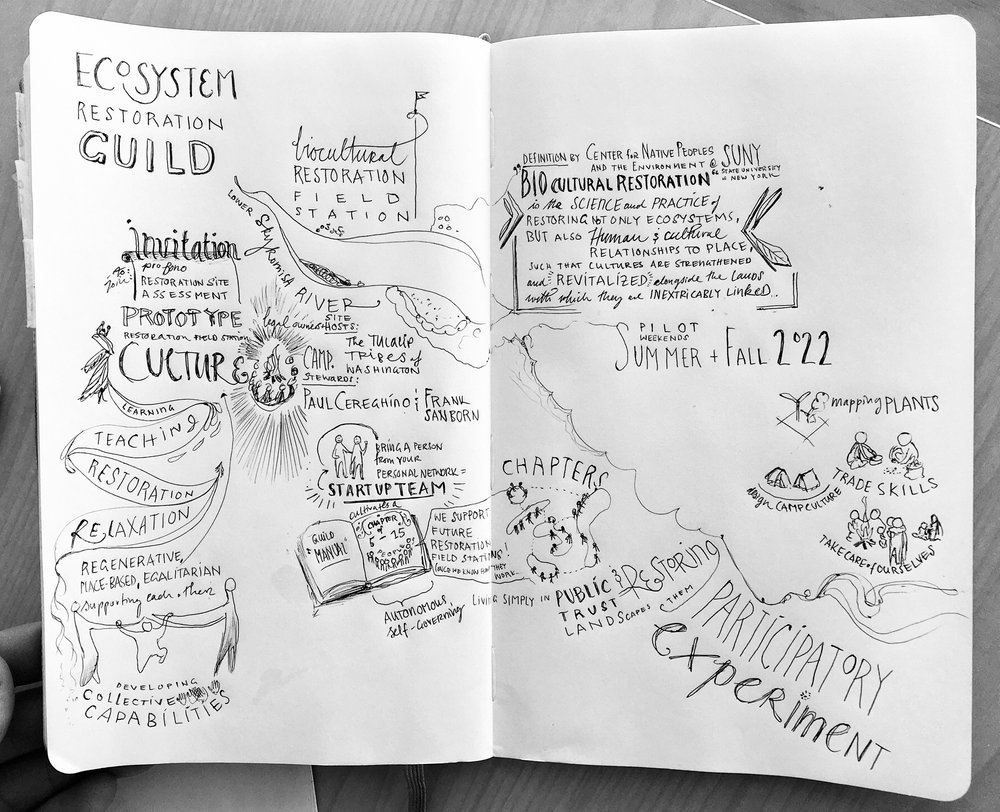 ECOSYSTEM
RESTORATION
GUILD
biocultural
RESTORATION
FIELD
STATION
LOWER SKYKOMISH
RIVER
invitation
to
join:
pro bono
RESTORATION SITE
ASSESSMENT
PROTOTYPE
RESTORATION FIELD STATION
CULTURE
CAMP.
SITE
Legal owners + HOSTS:
The TULALIP
TRIBES of
WASHINGTON
STEWARDS:
PAUL CEREGHINO & FRANK
SANBORN
LEARNING
TEACHING
RESTORATION
RELAXATION
REGENERATIVE,
PLACE-BASED, EGALITARIAN
supporting each other
DEVELOPING
COLLECTIVE
CAPABILITIES
BRING A PERSON
from YOUR
PERSONAL NETWORK =
START UP TEAM
cultivates a
GUILD
MANUAL
CHAPTER
of
5 - 15
PEOPLE
AUTONOMOUS,
self-GOVERNING
WE SUPPORT
FUTURE
RESTORATION
FIELD STATIONS!
ONCE WE KNOW HOW THEY
WORK
DEFINITION BY CENTER for NATIVE PEOPLES
AND THE ENVIRONMENT @ SUNY
STATE UNIVERSITY
of NEW YORK
"BIOCULTURAL RESTORATION"
is the SCIENCE and PRACTICE of
RESTORING NOT ONLY ECOSYSTEMS,
BUT ALSO Human & cultural
RELATIONSHIPS TO PLACE,
SUCH THAT CULTURES ARE STRENGTHENED
and REVITALIZED alongside the lands
with which they are INEXTRICABLY LINKED..
PILOT
WEEKENDS
SUMMER + FALL 2022
mapping PLANTS
TRADE SKILLS
design CAMP CULTURE
TAKE CARE of OURSELVES
CHAPTERS
LIVING SIMPLY in PUBLIC
TRUST
LANDSCAPES
& RESTORING
THEM
PARTICIPATORY
experiment